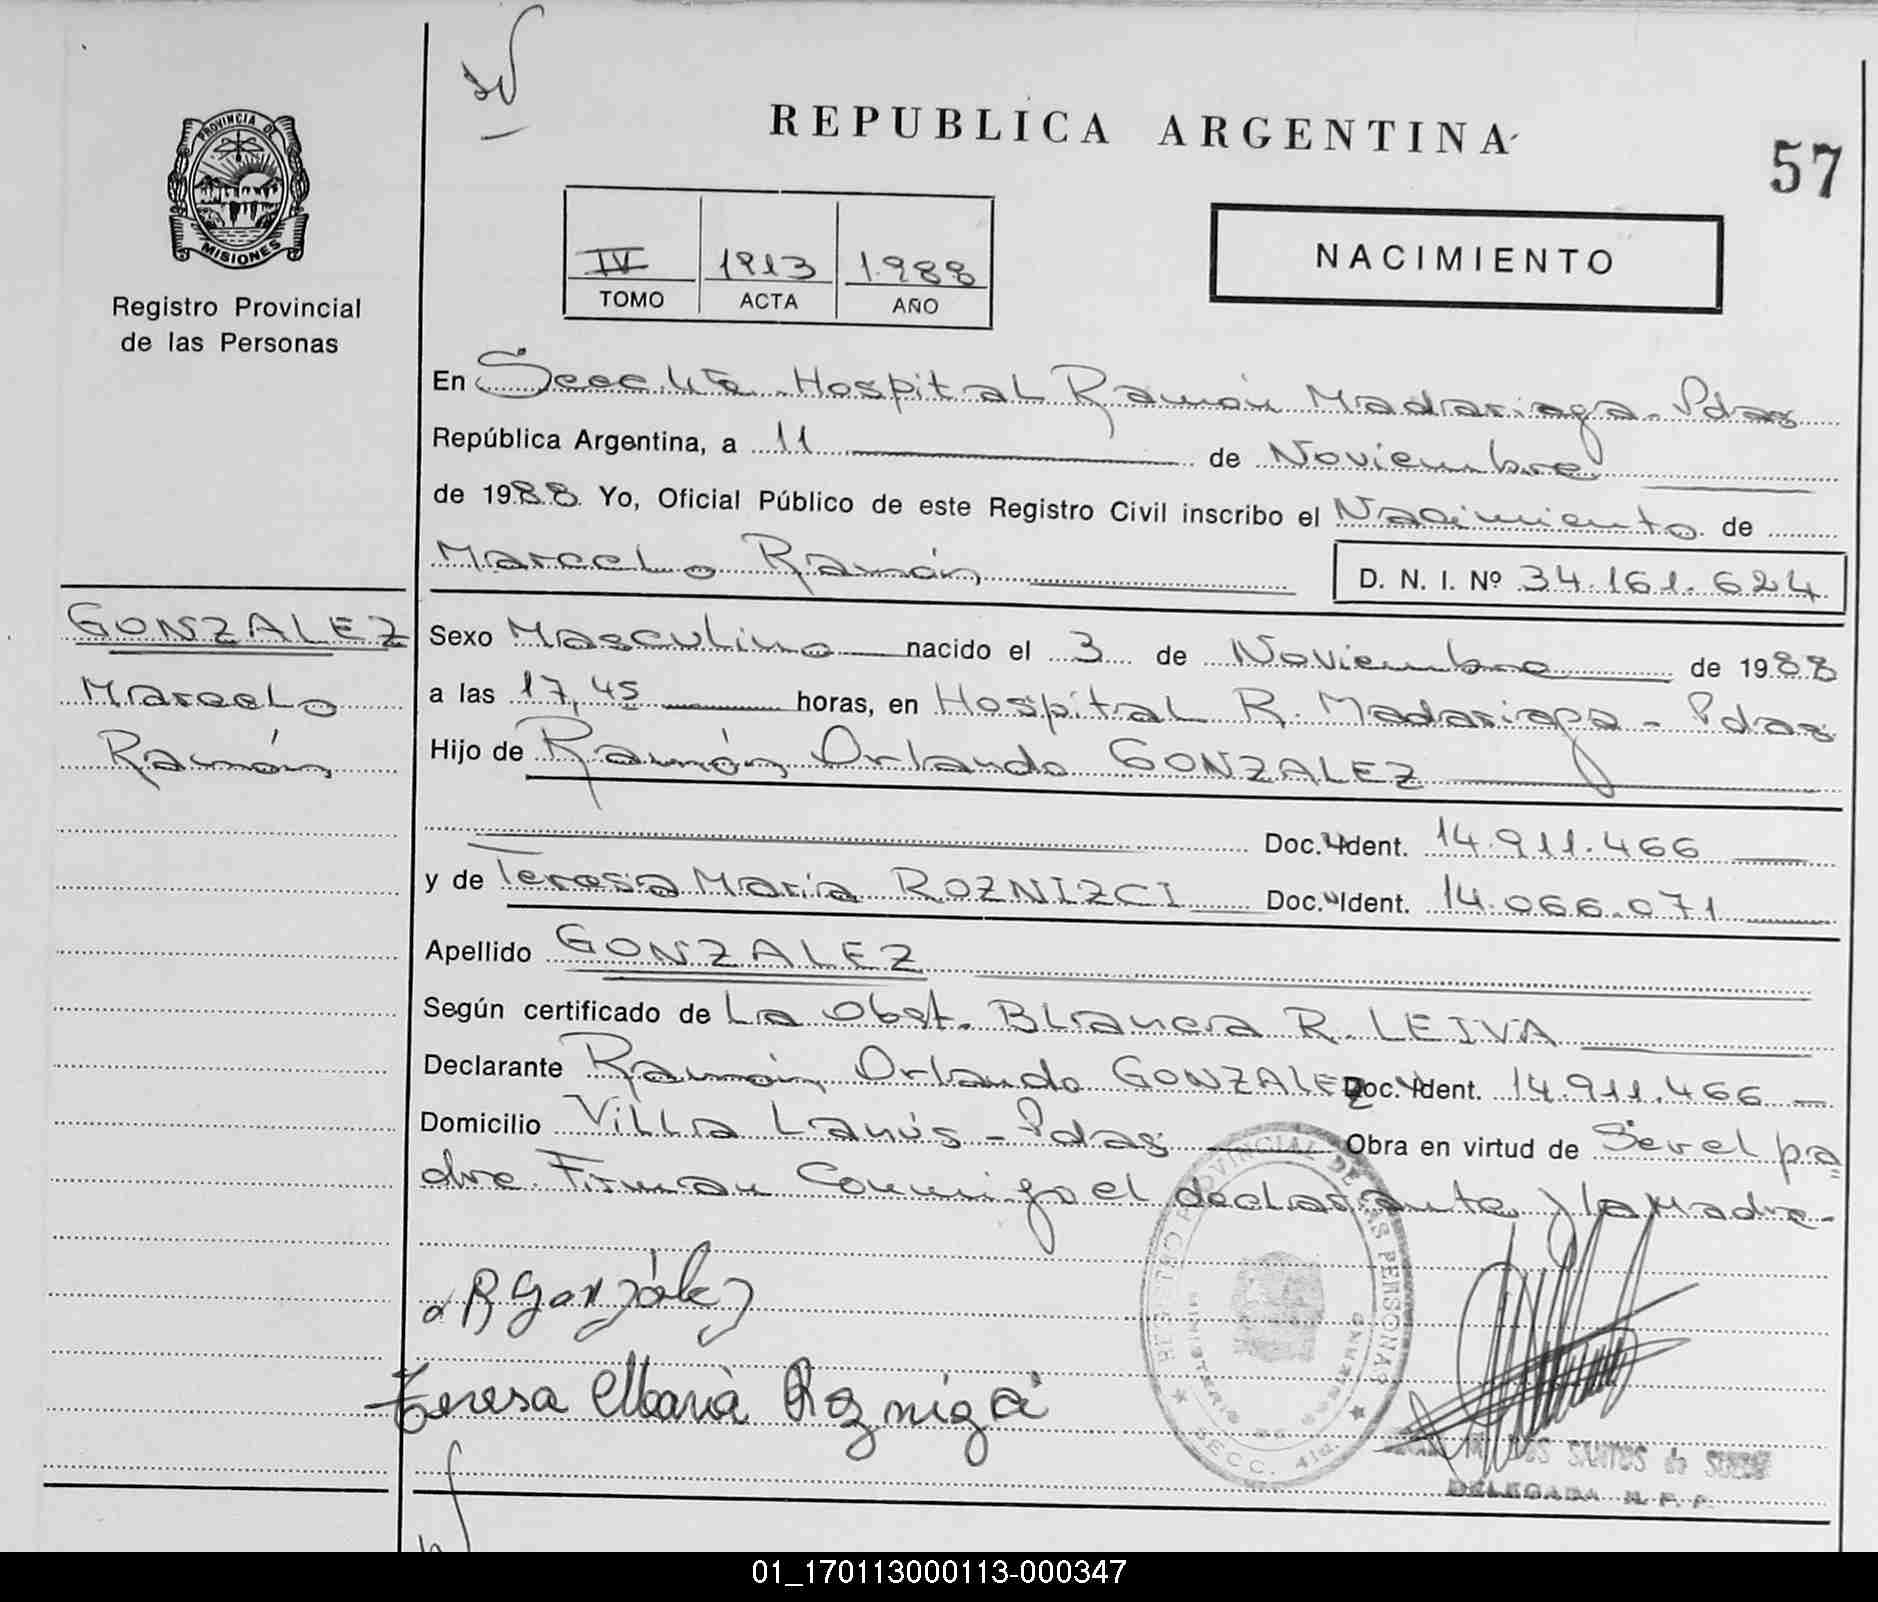 REPUBLICA ARGENTINA
57
PROVINCIA DE
MISIONES
Registro Provincial
de las Personas
IV 1913 1988
TOMO ACTA AÑO
NACIMIENTO
En Secc. 4ta. Hospital Ramón Madariaga - Pdas
República Argentina, a 11 de Noviembre
de 1988 Yo, Oficial Público de este Registro Civil inscribo el Nacimiento de
Marcelo Ramón
D. N. I. Nº 34.161.624
GONZALEZ
Marcelo
Ramón
Sexo Masculino nacido el 3 de Noviembre de 1988
a las 17,45 horas, en Hospital R. Madariaga - Pdas
Hijo de Ramón Orlando GONZALEZ
Doc. Ident. 14.911.466
y de Teresa María ROZNIZCI Doc. Ident. 14.066.071
Apellido GONZALEZ
Según certificado de La Obst. Blanca R. LEIVA
Declarante Ramón Orlando GONZALEZ Doc. Ident. 14.911.466
Domicilio Villa Lanús - Pdas Obra en virtud de Ser el pa
dre. Firman Conmigo el declarante y la Madre-
R González
Teresa Maria Roznizci
PROVINCIAL DE LAS PERSONAS
MINISTERIO DE GOBIERNO
SECC. 4ta.
DOS SANTOS de
DELEGADA R. P. P.
01_170113000113-000347